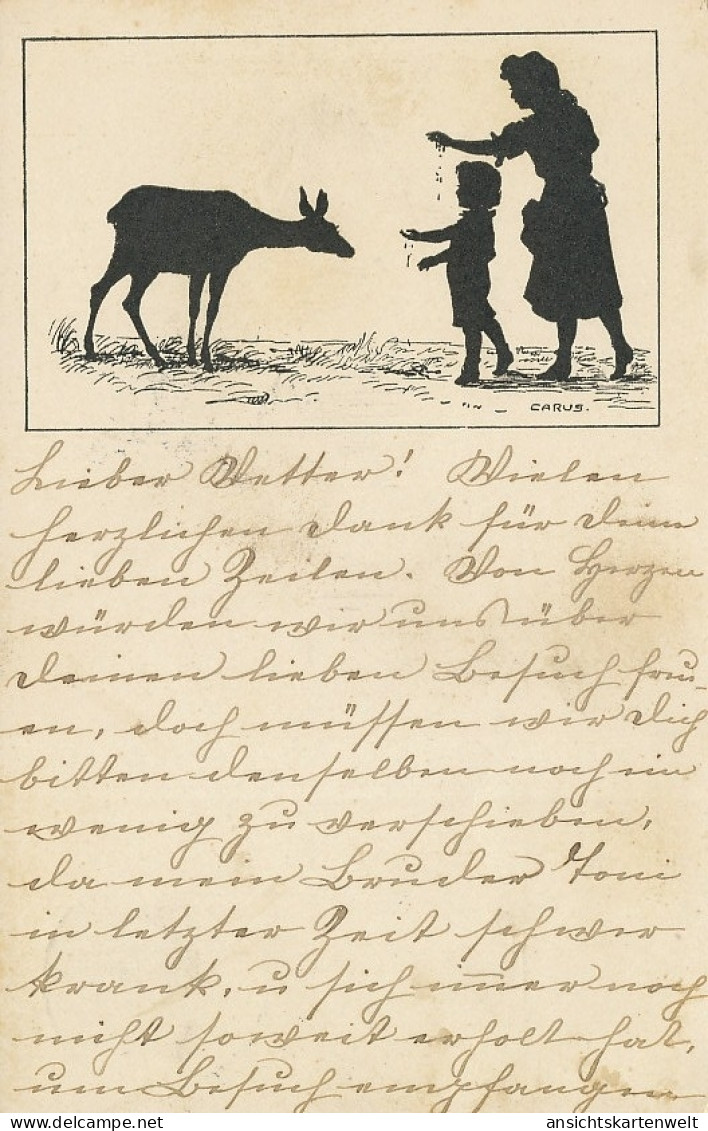 CARUS.
Lieber Vetter! Vielen
herzlichen Dank für Deine
lieben Zeilen. Von Herzen
würden wir uns über
Deinen lieben Besuch freu-
en, doch müssen wir Dich
bitten denselben noch ein
wenig zu verschieben,
da mein Bruder Toni
in letzter Zeit schwer
krank, u sich immer noch
nicht soweit erholt hat,
um Besuch empfangen
delcampe.net
ansichtskartenwelt